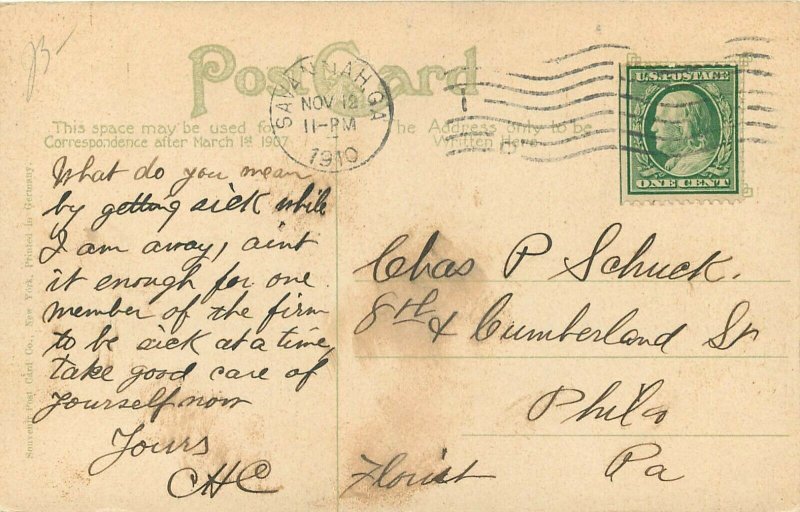 Post Card
SAVANNAH, GA
NOV 12
11-PM
1910
U.S. POSTAGE
ONE CENT
This space may be used for
Correspondence after March 1st 1907
The Address only to be
Written Here
Souvenir Post Card Co., New York, Printed in Germany.
What do you mean
by getting sick while
I am away, aint
it enough for one
member of the firm
to be sick at a time,
take good care of
yourself now
Yours
CHC
Chas P Schuck.
8th & Cumberland St
Phila
Pa
Florist